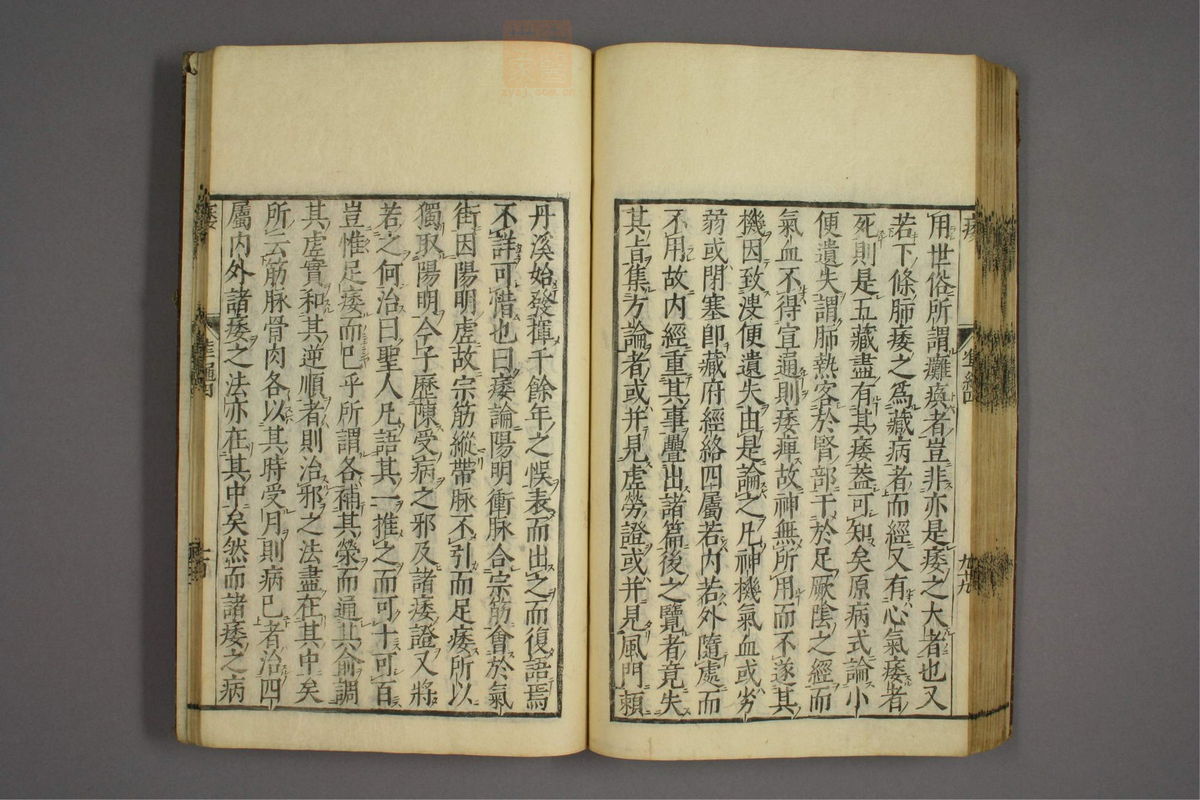 用世俗所謂癱瘓者豈非亦是痿之大者也又
若下條肺痿之爲藏病者而經又有心氣痿者
死則是五藏盡有其痿葢可知矣原病式論小
便遺失謂肺熱客於腎部干於足厥陰之經而
氣血不得宣通則痿痺故神無所用而不遂其
機因致溲便遺失由是論之凡神機氣血或劣
弱或閉塞卽藏府經絡四屬若内若外隨處而
不用故内經重其事疊出諸篇後之覽者竟失
其旨集方論者或并見虛勞證或并見風門頼
丹溪始發揮千餘年之悞表而出之而復語焉
不詳可惜也曰痿論陽明衝脉合宗筋會於氣
街因陽明虛故宗筋縱帶脉不引而足痿所以
獨取陽明今子歷陳受病之邪及諸痿證又將
若之何治曰聖人凡語其一推之而可十可百
豈惟足痿而已乎所謂各補其滎而通其俞調
其虛實和其逆順者則治邪之法盡在其中矣
所云筋脉骨肉各以其時受月則病已者治四
屬内外諸痿之法亦在其中矣然而諸痿之病
痿